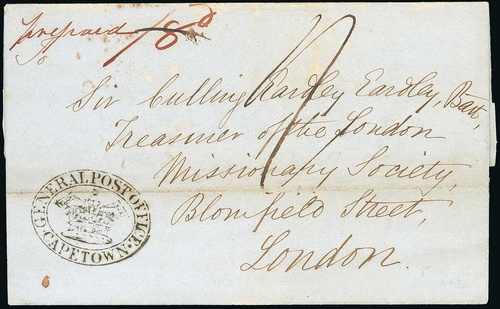 prepaid /8d
To
Sir Culling Eardley Eardley, Bart,
Treasurer of the London
Missionary Society,
Blomfield Street,
London.
GENERAL POST OFFICE
CAPETOWN